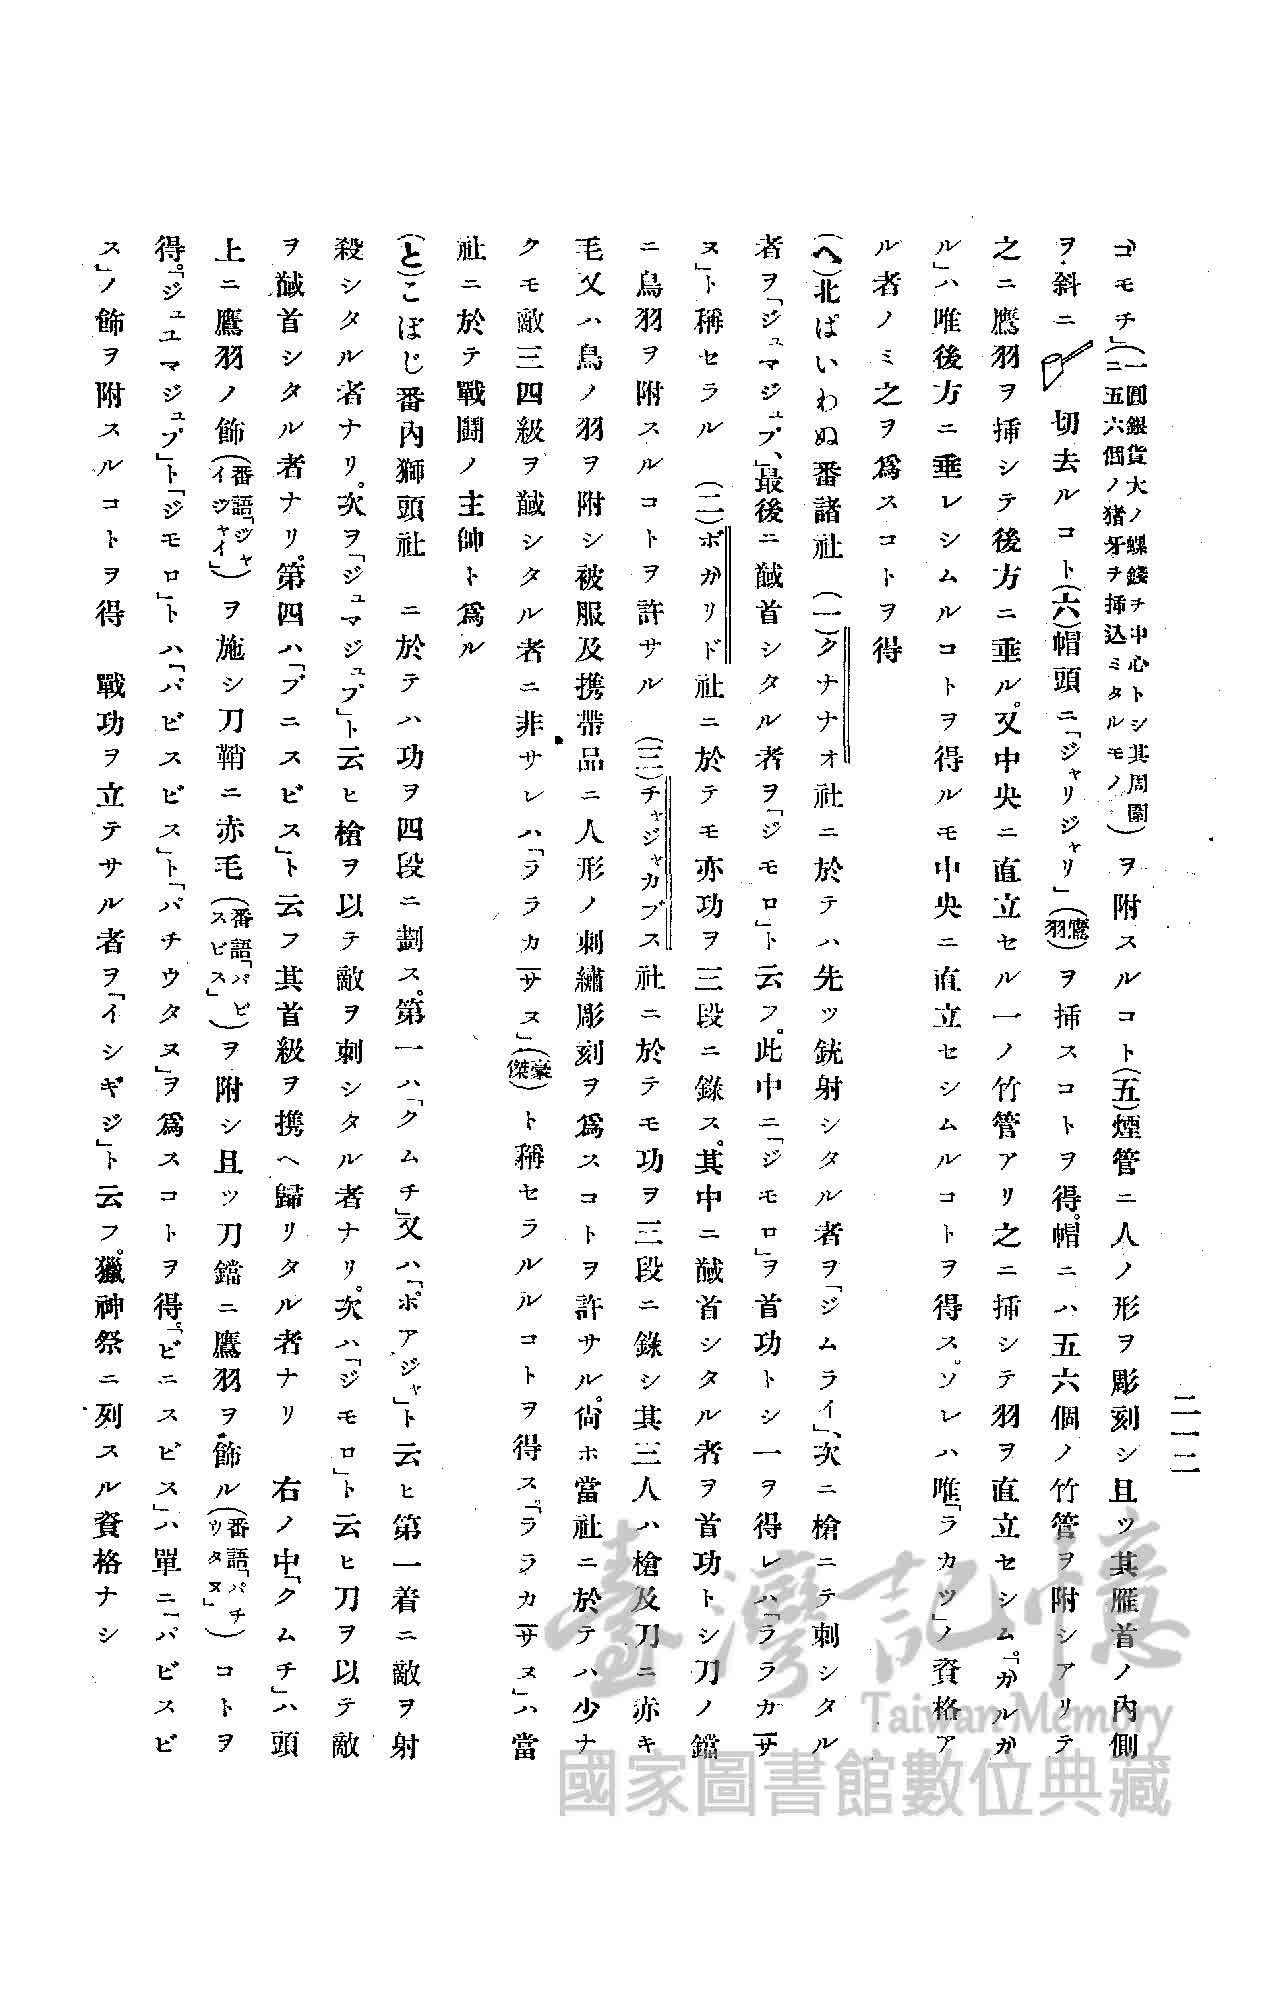 二一二
ゴモチ」(一圓銀貨大ノ螺錢ヲ中心トシ其周圍ニ五六個ノ猪牙ヲ挿込ミタルモノ)ヲ附スルコト(五)煙管ニ人ノ形ヲ彫刻シ且ツ其雁首ノ內側
ヲ斜ニ切去ルコト(六)帽頭ニ「ジャリジャリ」(鷹羽)ヲ挿スコトヲ得。帽ニハ五六個ノ竹管ヲ附シアリテ
之ニ鷹羽ヲ挿シテ後方ニ垂ル。又中央ニ直立セル一ノ竹管アリ之ニ挿シテ羽ヲ直立セシム。「ガルガ
ル」ハ唯後方ニ垂レシムルコトヲ得ルモ中央ニ直立セシムルコトヲ得ス。ソレハ唯「ラカツ」ノ資格ア
ル者ノミ之ヲ爲スコトヲ得
(へ)北ぱいわぬ番諸社 (一)クナナオ社ニ於テハ先ツ銃射シタル者ヲ「ジムライ」、次ニ槍ニテ刺シタル
者ヲ「ジュマジュプ」、最後ニ馘首シタル者ヲ「ジモロ」ト云フ。此中ニ「ジモロ」ヲ首功トシ一ヲ得レハ「ララカーサ
ヌ」ト稱セラル (二)ボガリド社ニ於テモ亦功ヲ三段ニ錄ス。其中ニ馘首シタル者ヲ首功トシ刀ノ鐺
ニ鳥羽ヲ附スルコトヲ許サル (三)チャジャカブス社ニ於テモ功ヲ三段ニ錄シ其三人ハ槍及刀ニ赤キ
毛又ハ鳥ノ羽ヲ附シ被服及携帶品ニ人形ノ刺繡彫刻ヲ爲スコトヲ許サル。尙ホ當社ニ於テハ少ナ
クモ敵三四級ヲ馘シタル者ニ非サレハ「ララカーサヌ」(豪傑)ト稱セラルルコトヲ得ス。「ララカーサヌ」ハ當
社ニ於テ戰鬪ノ主帥ト爲ル
(と)こぼじ番內獅頭社 ニ於テハ功ヲ四段ニ劃ス。第一ハ「クムチ」又ハ「ポアジャ」ト云ヒ第一着ニ敵ヲ射
殺シタル者ナリ。次ヲ「ジュマジュプ」ト云ヒ槍ヲ以テ敵ヲ刺シタル者ナリ。次ハ「ジモロ」ト云ヒ刀ヲ以テ敵
ヲ馘首シタル者ナリ。第四ハ「ブニスビス」ト云フ其首級ヲ携ヘ歸リタル者ナリ 右ノ中「クムチ」ハ頭
上ニ鷹羽ノ飾(番語「ジャイジャイ」)ヲ施シ刀鞘ニ赤毛(番語「パビスビス」)ヲ附シ且ツ刀鐺ニ鷹羽ヲ飾ル(番語「パチウタヌ」)コトヲ
得。「ジュエマジュプ」ト「ジモロ」トハ「パビスビス」ト「パチウタヌ」ヲ爲スコトヲ得。「ビニスビス」ハ單ニ「パビスビ
ス」ノ飾ヲ附スルコトヲ得 戰功ヲ立テサル者ヲ「イシギジ」ト云フ。獵神祭ニ列スル資格ナシ
臺灣記憶
Taiwan Memory
國家圖書館數位典藏